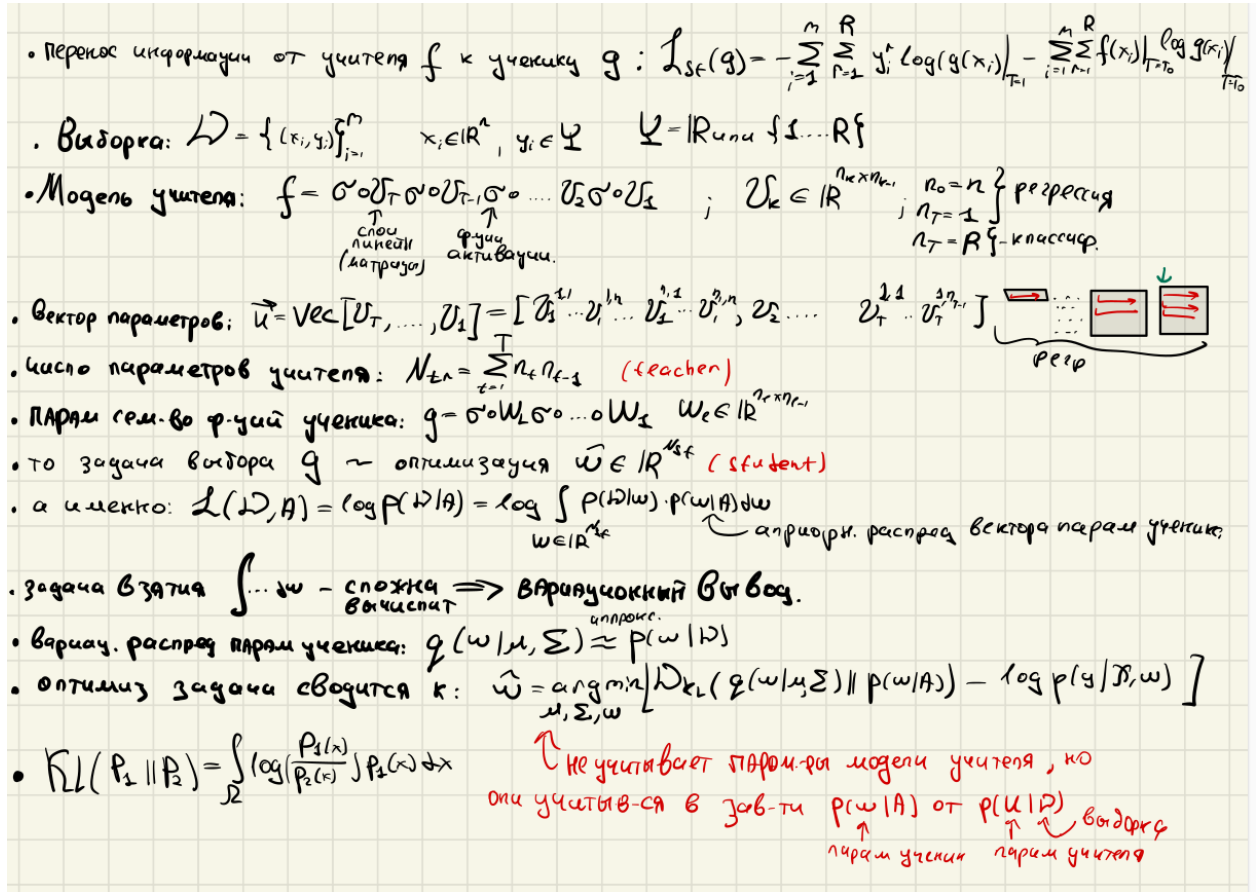 • Перенос информации от учителя f к ученику g : ℒ_st(g) = - Σ_{i=1}^{m} Σ_{r=1}^{R} y_i^r log(g(x_i))|_{T=1} - Σ_{i=1}^{m} Σ_{r=1}^{R} f(x_i)|_{T=T_0} log g(x_i)|_{T=T_0}
• Выборка: D = {(x_i, y_i)}_{i=1}^{m} x_i ∈ ℝ^n, y_i ∈ Y Y = ℝ или {1....R}
• Модель учителя: f = σ∘U_T σ∘U_{T-1} σ∘ .... U_2 σ∘U_1 ; U_k ∈ ℝ^{n_k×n_{k-1}} ; n_0 = n n_T = 1 } регрессия
n_T = R } - классиф.
слои линейн (матрицы)
ф-ции активации.
• Вектор параметров: u⃗ = vec[U_T, ..., U_1] = [U_1^{1,1}...U_1^{1,n}... U_1^{n,1}...U_1^{n,n}, U_2.... U_T^{1,1}...U_T^{1,n_{T-1}}]
регр
• число параметров учителя: N_tr = Σ_{t=1}^{T} n_t n_{t-1} (teacher)
• ПАРАМ сем-во ф-ций ученика: g = σ∘W_L σ∘...∘W_1 W_e ∈ ℝ^{n_e×n_{e-1}}
• то задача выбора g ~ оптимизация ŵ ∈ ℝ^{N_st} (student)
• а именно: ℒ(D, A) = log p(D|A) = log ∫_{w∈ℝ^{N_st}} p(D|w)·p(w|A)dw
априорн. распред вектора парам ученика
• задача взятия ∫... dw - сложна вычислит ⟹ ВАРИАЦИОННЫЙ Вывод.
• вариац. распред ПАРАМ ученика: q(w|μ, Σ) ≈ p(w|D)
аппрокс.
• оптимиз задача сводится к: ŵ = argmin_{μ, Σ, w} [D_KL(q(w|μ, Σ) || p(w|A)) - log p(y|X, w)]
• KL(P_1 || P_2) = ∫_Ω log(P_1(x)/P_2(x)) p_1(x) dx
не учитывает парам-ры модели учителя, но
они учитыв-ся в зав-ти p(w|A) от p(u|D)
выборка
парам ученик парам учителя